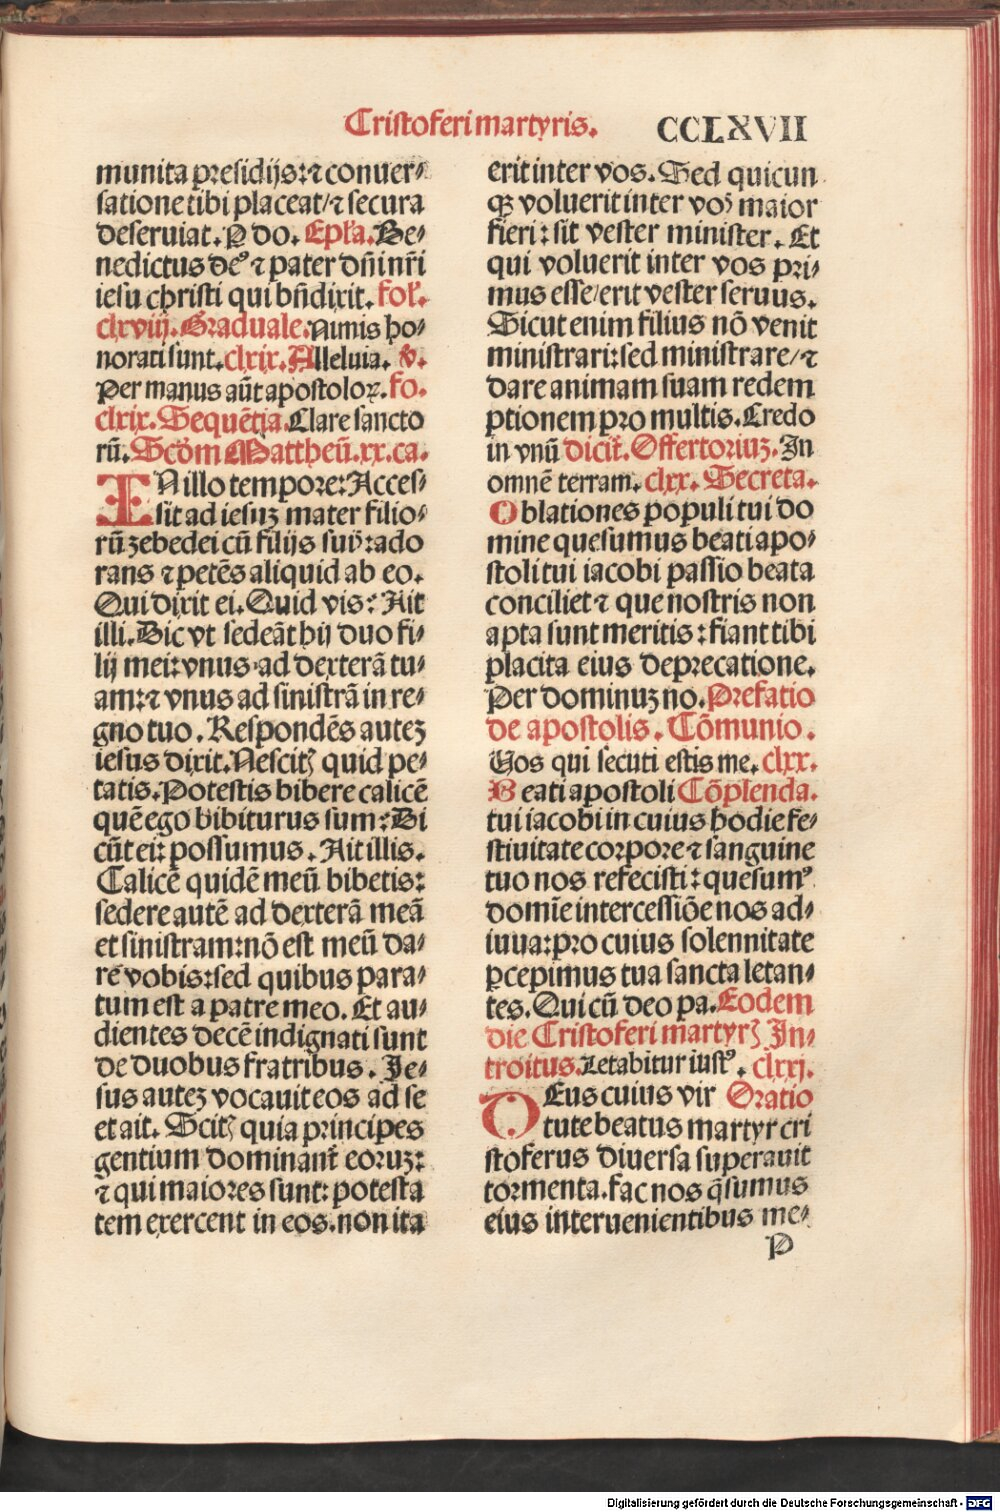 Cristoferi martyris. CCLXVII
munita presidijs: ⁊ conuer⸗
satione tibi placeat/ ⁊ secura
deseruiat. P do. Epl'a. Be⸗
nedictus deꝰ ⁊ pater dñi nr̃i
iesu christi qui bñdixit. fol'.
clxviij. Graduale. Nimis ho⸗
norati sunt. clxix. Alleluia. ꝟ.
Per manus aũt apostoloꝝ. fo.
clxix. Sequẽtia. Clare sancto
rũ. Scd̃m Mattheũ. xx. ca.
IN illo tempore: Acces⸗
sit ad iesuꝫ mater filio⸗
rũ zebedei cũ filijs suis: ado
rans ⁊ petẽs aliquid ab eo.
Qui dixit ei. Quid vis: Ait
illi. Dic vt sedeãt hij duo fi⸗
lij mei: vnus ad dexterã tu⸗
am: ⁊ vnus ad sinistrã in re⸗
gno tuo. Respondẽs auteꝫ
iesus dixit. Nescitꝭ quid pe⸗
tatis. Potestis bibere calicẽ
quẽ ego bibiturus sum: Di
cũt ei: possumus. Ait illis.
Calicẽ quidẽ meũ bibetis:
sedere autẽ ad dexterã meã
et sinistram: nõ est meũ da⸗
re vobis: sed quibus para⸗
tum est a patre meo. Et au⸗
dientes decẽ indignati sunt
de duobus fratribus. Je⸗
sus auteꝫ vocauit eos ad se
et ait. Scitꝭ quia principes
gentium dominant̃ eoruꝫ:
⁊ qui maiores sunt: potesta
tem exercent in eos. non ita
erit inter vos. Sed quicun
qꝫ voluerit inter vos maior
fieri: sit vester minister. Et
qui voluerit inter vos pri⸗
mus esse/ erit vester seruus.
Sicut enim filius nõ venit
ministrari: sed ministrare/ ⁊
dare animam suam redem
ptionem pro multis. Credo
in vnũ dicit̃. Offertoriuꝫ. In
omnẽ terram. clxx. Secreta.
Oblationes populi tui do
mine quesumus beati apo⸗
stoli tui iacobi passio beata
conciliet ⁊ que nostris non
apta sunt meritis: fiant tibi
placita eius deprecatione.
Per dominuꝫ no. Prefatio
de apostolis. Cõmunio.
Uos qui secuti estis me. clxx.
Beati apostoli Cõplenda.
tui iacobi in cuius hodie fe⸗
stiuitate corpore ⁊ sanguine
tuo nos refecisti: quesumꝰ
domĩe intercessiõe nos ad⸗
iuua: pro cuius solennitate
ꝑcepimus tua sancta letan⸗
tes. Qui cũ deo pa. Eodem
die Cristoferi martyrꝭ In⸗
troitus. Letabitur iustꝰ. clxxj.
DEus cuius vir Oratio
tute beatus martyr cri
stoferus diuersa superauit
tormenta. fac nos q̃sumus
eius interuenientibus me⸗
P
Digitalisierung gefördert durch die Deutsche Forschungsgemeinschaft - DFG